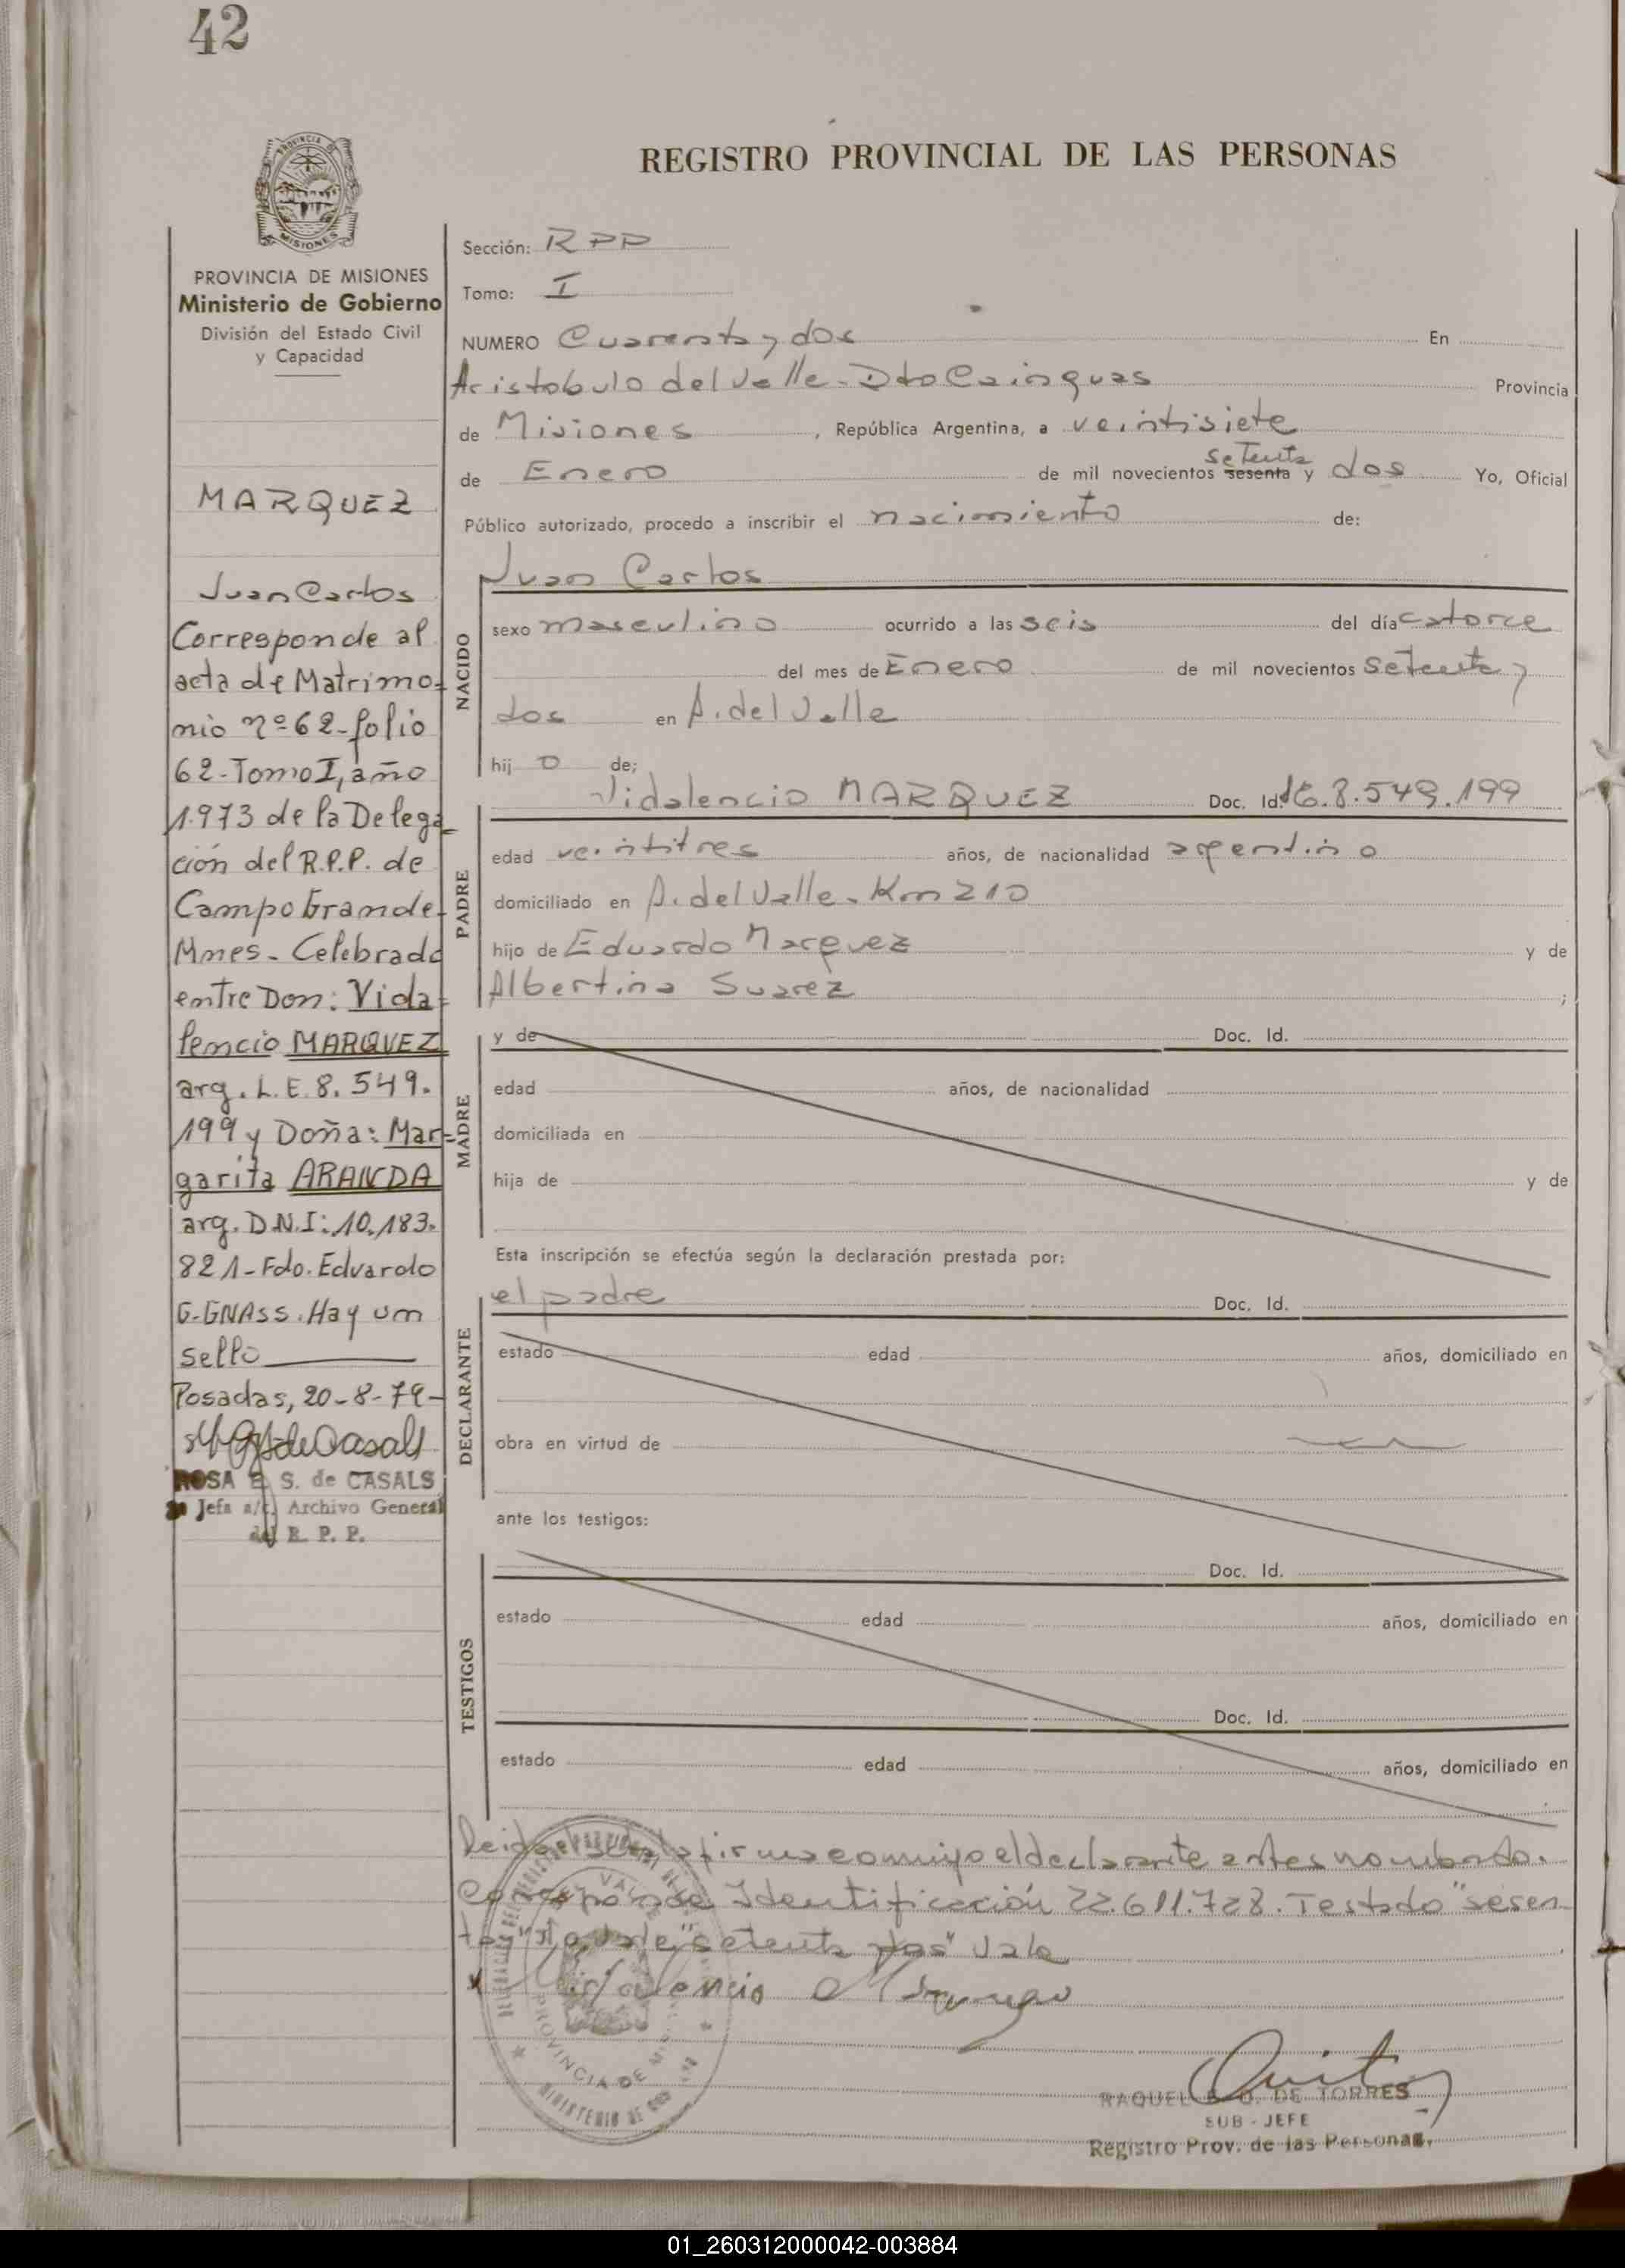 42
REGISTRO PROVINCIAL DE LAS PERSONAS
PROVINCIA DE
MISIONES
PROVINCIA DE MISIONES
Ministerio de Gobierno
División del Estado Civil
y Capacidad
MARQUEZ
Juan Carlos
Corresponde al
acta de Matrimo-
nio nº 62-folio
62-Tomo I, año
1.973 de la Delega
ción del R.P.P. de
Campo Grande-
Mnes- Celebrado
entre Don: Vida-
lencio MARQUEZ
arg. L.E. 8.549.
199 y Doña: Mar-
garita ARANDA
arg. D.N.I: 10.183.
821-Fdo. Eduardo
G-GNASS. Hay um
sello
Posadas, 20-8-79-
ROSA E. S. de CASALS
Jefa a/c. Archivo General
del R. P. P.
Sección: RPP
Tomo: I
NUMERO Cuarenta y dos En
Aristobulo del Valle - Dto Cainguas Provincia
de Misiones, República Argentina, a veintisiete
setenta
de Enero de mil novecientos sesenta y dos Yo, Oficial
Público autorizado, procedo a inscribir el nacimiento de:
Juan Carlos
NACIDO
sexo masculino ocurrido a las seis del día catorce
del mes de Enero de mil novecientos setenta y
dos en A. del Valle
hij o de;
PADRE
Vidalencio MARQUEZ Doc. Id. 8.549.199
edad veintitres años, de nacionalidad argentino
domiciliado en A. del Valle - Km 210
hijo de Eduardo Marquez y de
Albertina Suarez ;
MADRE
y de Doc. Id.
edad años, de nacionalidad
domiciliada en
hija de y de
Esta inscripción se efectúa según la declaración prestada por:
DECLARANTE
el padre Doc. Id.
estado edad años, domiciliado en
obra en virtud de
ante los testigos:
TESTIGOS
Doc. Id.
estado edad años, domiciliado en
Doc. Id.
estado edad años, domiciliado en
Leida el acta firma conmigo el declarante antes nombrado.
Corresponde Identificación 22.611.728. Testado "sesen
ta" "setenta dos" Vale
Vidalencio Marquez
PROVINCIA DE
MINISTERIO DE
RAQUEL DE TORRES
SUB - JEFE
Registro Prov. de las Personas.
01_260312000042-003884